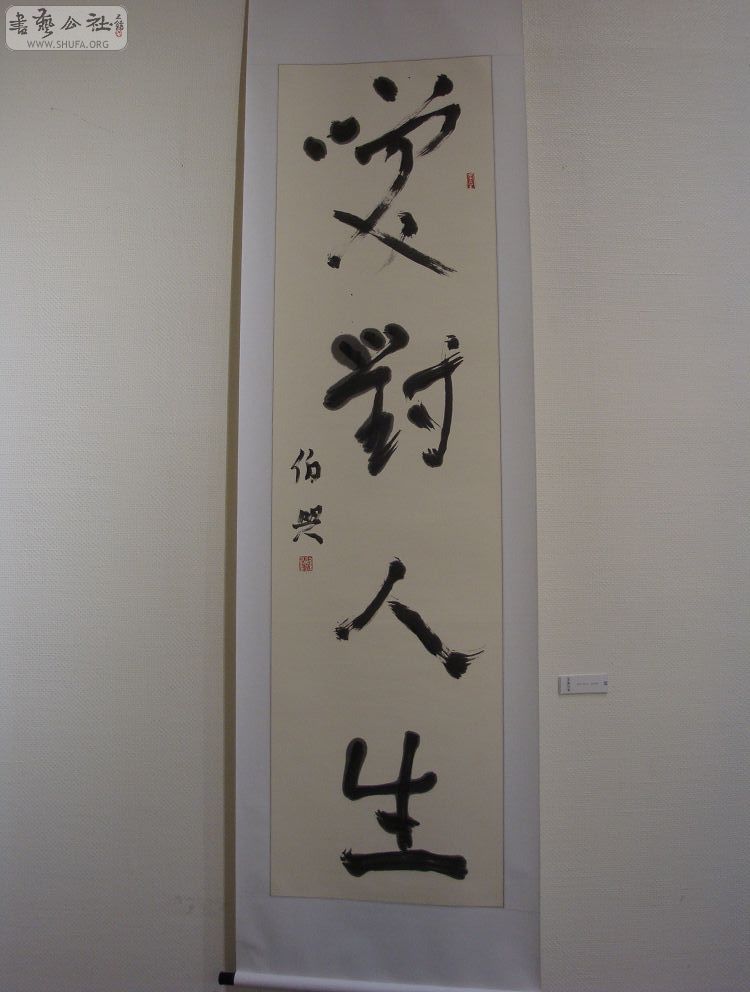 書藝公社
WWW.SHUFA.ORG
笑對人生
伯